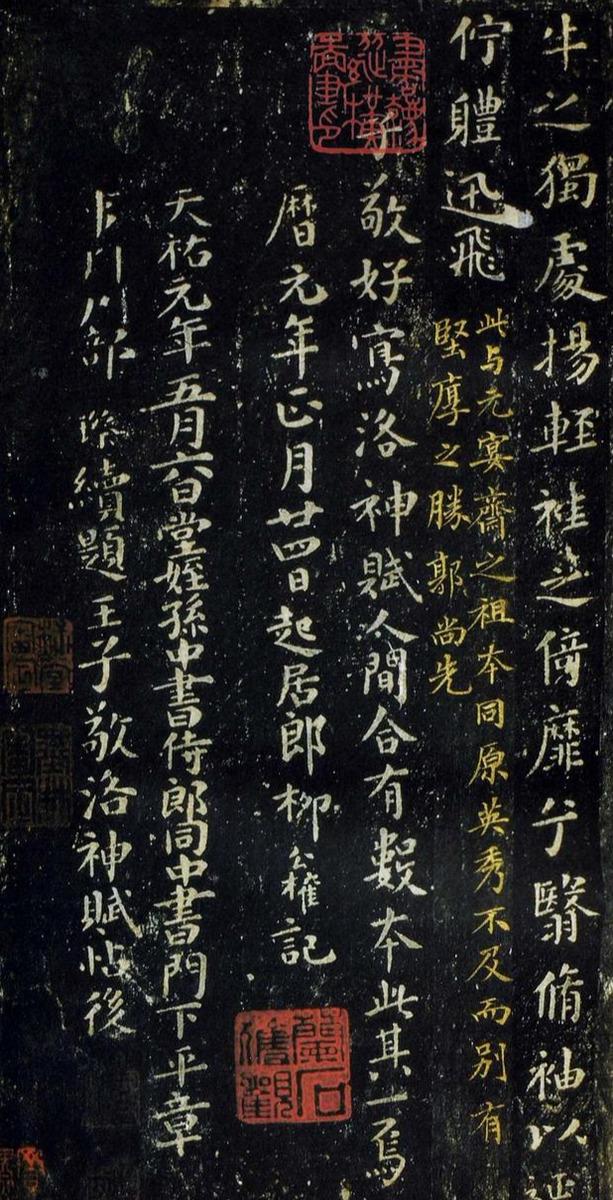 牛之獨處揚輕袿之倚靡兮翳脩袖以延
佇體迅飛
此与元宴齋之祖本同原英秀不及而別有
堅厚之勝郭尚先
子敬好寫洛神賦人間合有數本此其一焉
曆元年正月廿四日起居郎柳公權記
天祐元年五月六日堂姪孫中書侍郎同中書門下平章
部續題王子敬洛神賦帖後